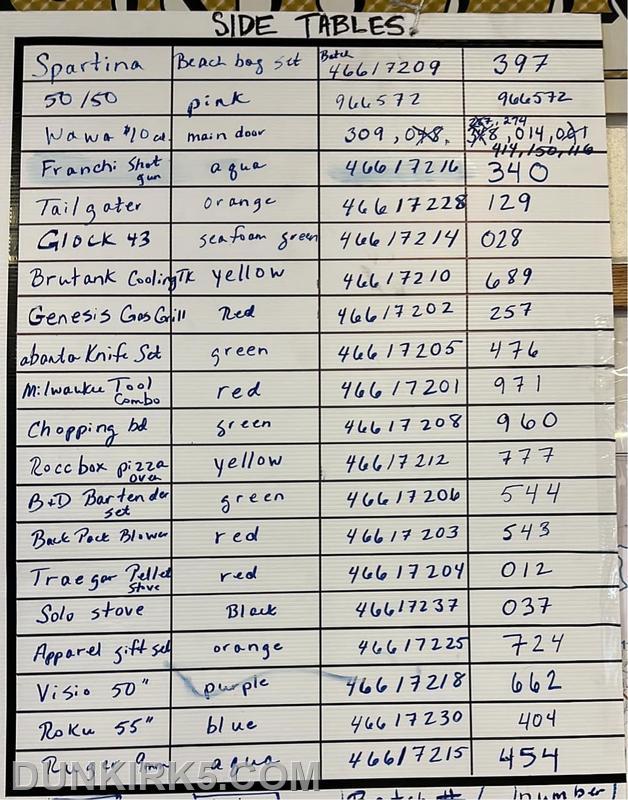 SIDE TABLES.
Spartina Beach bag set Batch 46617209 397
50/50 pink 966572 966572
Wawa $10 cd. main door 309, 078, 287, 274 318, 014, 001
414, 150, 116
Franchi Shot gun aqua 46617216 340
Tailgater orange 46617228 129
Glock 43 seafoam green 46617214 028
Brutank Cooling TK yellow 46617210 689
Genesis Gas Grill Red 46617202 257
abanta Knife Set green 46617205 476
Milwauku Tool Combo red 46617201 971
Chopping bd green 46617208 960
Roccbox pizza oven yellow 46617212 777
B+D Bartender set green 46617206 544
Back Pack Blower red 46617203 543
Traegar Pellet Stove red 46617204 012
Solo stove Black 46617237 037
Apparel gift set orange 46617225 724
Visio 50" purple 46617218 662
Roku 55" blue 46617230 404
Ruger 9mm aqua 46617215 454
DUNKIRK5.COM
Batch # / number